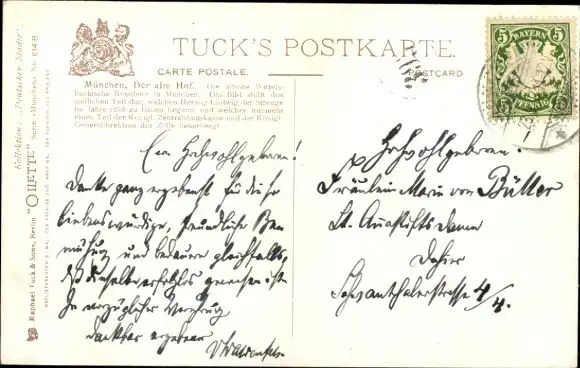 TUCK'S POSTKARTE.
CARTE POSTALE.
POSTCARD.
München, Der alte Hof. Die älteste Wittels-
bachische Residenz in München. Das Bild stellt den
östlichen Teil dar, welchen Herzog Ludwig der Strenge
im Jahre 1255 zu bauen begann und welcher nunmehr
einen Teil der Königl. Zentralstaatskasse und der Königl.
Generaldirektion der Zölle beherbergt.
Raphael Tuck & Sons, Berlin "OILETTE" Serie "München" No. 614 B.
Kollektion: "Deutscher Städte"
5 BAYERN 5
PFENNIG
Euer Hochwohlgeboren!
Danke ganz ergebenst für die so
liebenswürdige, freundliche Be-
mühung und bedaure gleichfalls,
daß dieselbe erfolglos gewesen ist.
In vorzüglicher Verehrung
dankbar ergebener
Hochwohlgeboren.
Fräulein Marie von Büller
St. Annastiftsdame
Dahier
Schwanthalerstrasse 4/4.